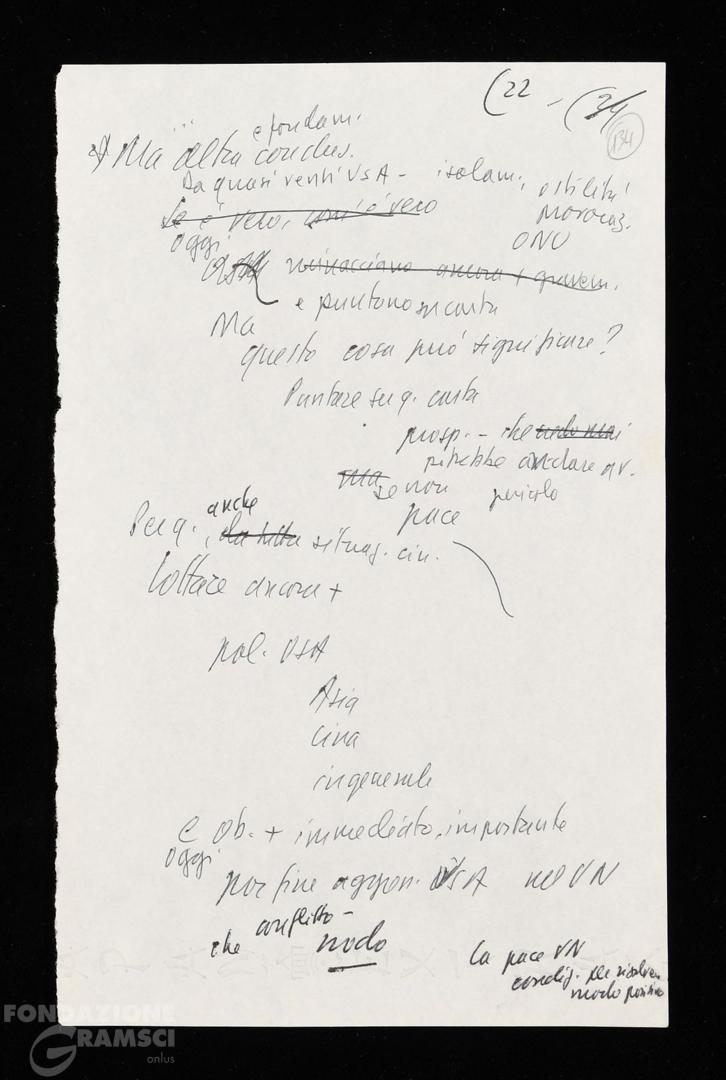 (22 - (34
134
... e fondam.
Ma altra conclus.
Da quasi venti USA - isolam., ostilità
Se è vero, com'è vero
oggi
ONU
USA minacciano ancora + gravem.
e puntano su carta
Ma
questo cosa può significare?
Puntare su q. carta
prosp. - che
potrebbe andare av.
ma
se non pericolo
pace
anche
Per q., situaz. cin.
Lottare ancora +
pol. USA
Asia
Cina
in generale
e ob. + immediato, importante
oggi
por fine aggress. USA nel VN
conflitto -
che nodo
La pace VN
condiz. per risolvere
modo positivo
FONDAZIONE
GRAMSCI
onlus